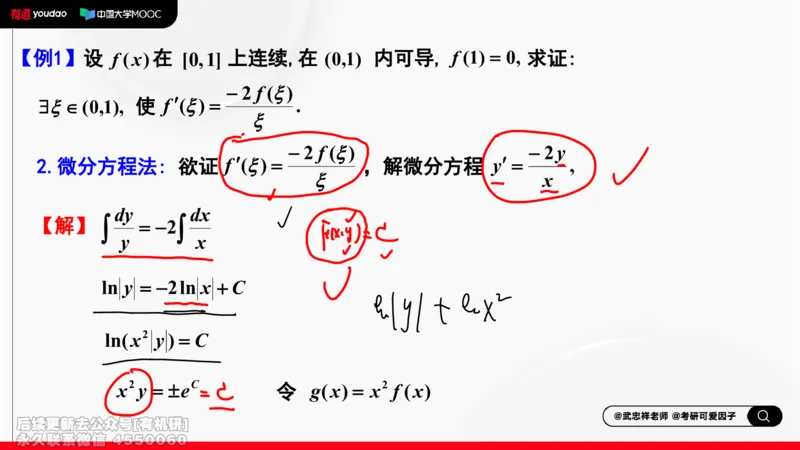 有道 youdao 中国大学MOOC
【例1】设 f(x) 在 [0,1] 上连续, 在 (0,1) 内可导, f(1) = 0, 求证:
∃ξ ∈ (0,1), 使 f′(ξ) = −2f(ξ)/ξ .
2. 微分方程法: 欲证 f′(ξ) = −2f(ξ)/ξ , 解微分方程 y′ = −2y/x ,
【解】 ∫ dy/y = −2∫ dx/x
F(x,y) = C
ln|y| = −2ln|x| + C
ln|y| + ln x²
ln(x²|y|) = C
x²y = ±e^C = C 令 g(x) = x² f(x)
@武忠祥老师 @考研可爱因子
后续更新去公众号[有机研]
永久联系微信 4550060